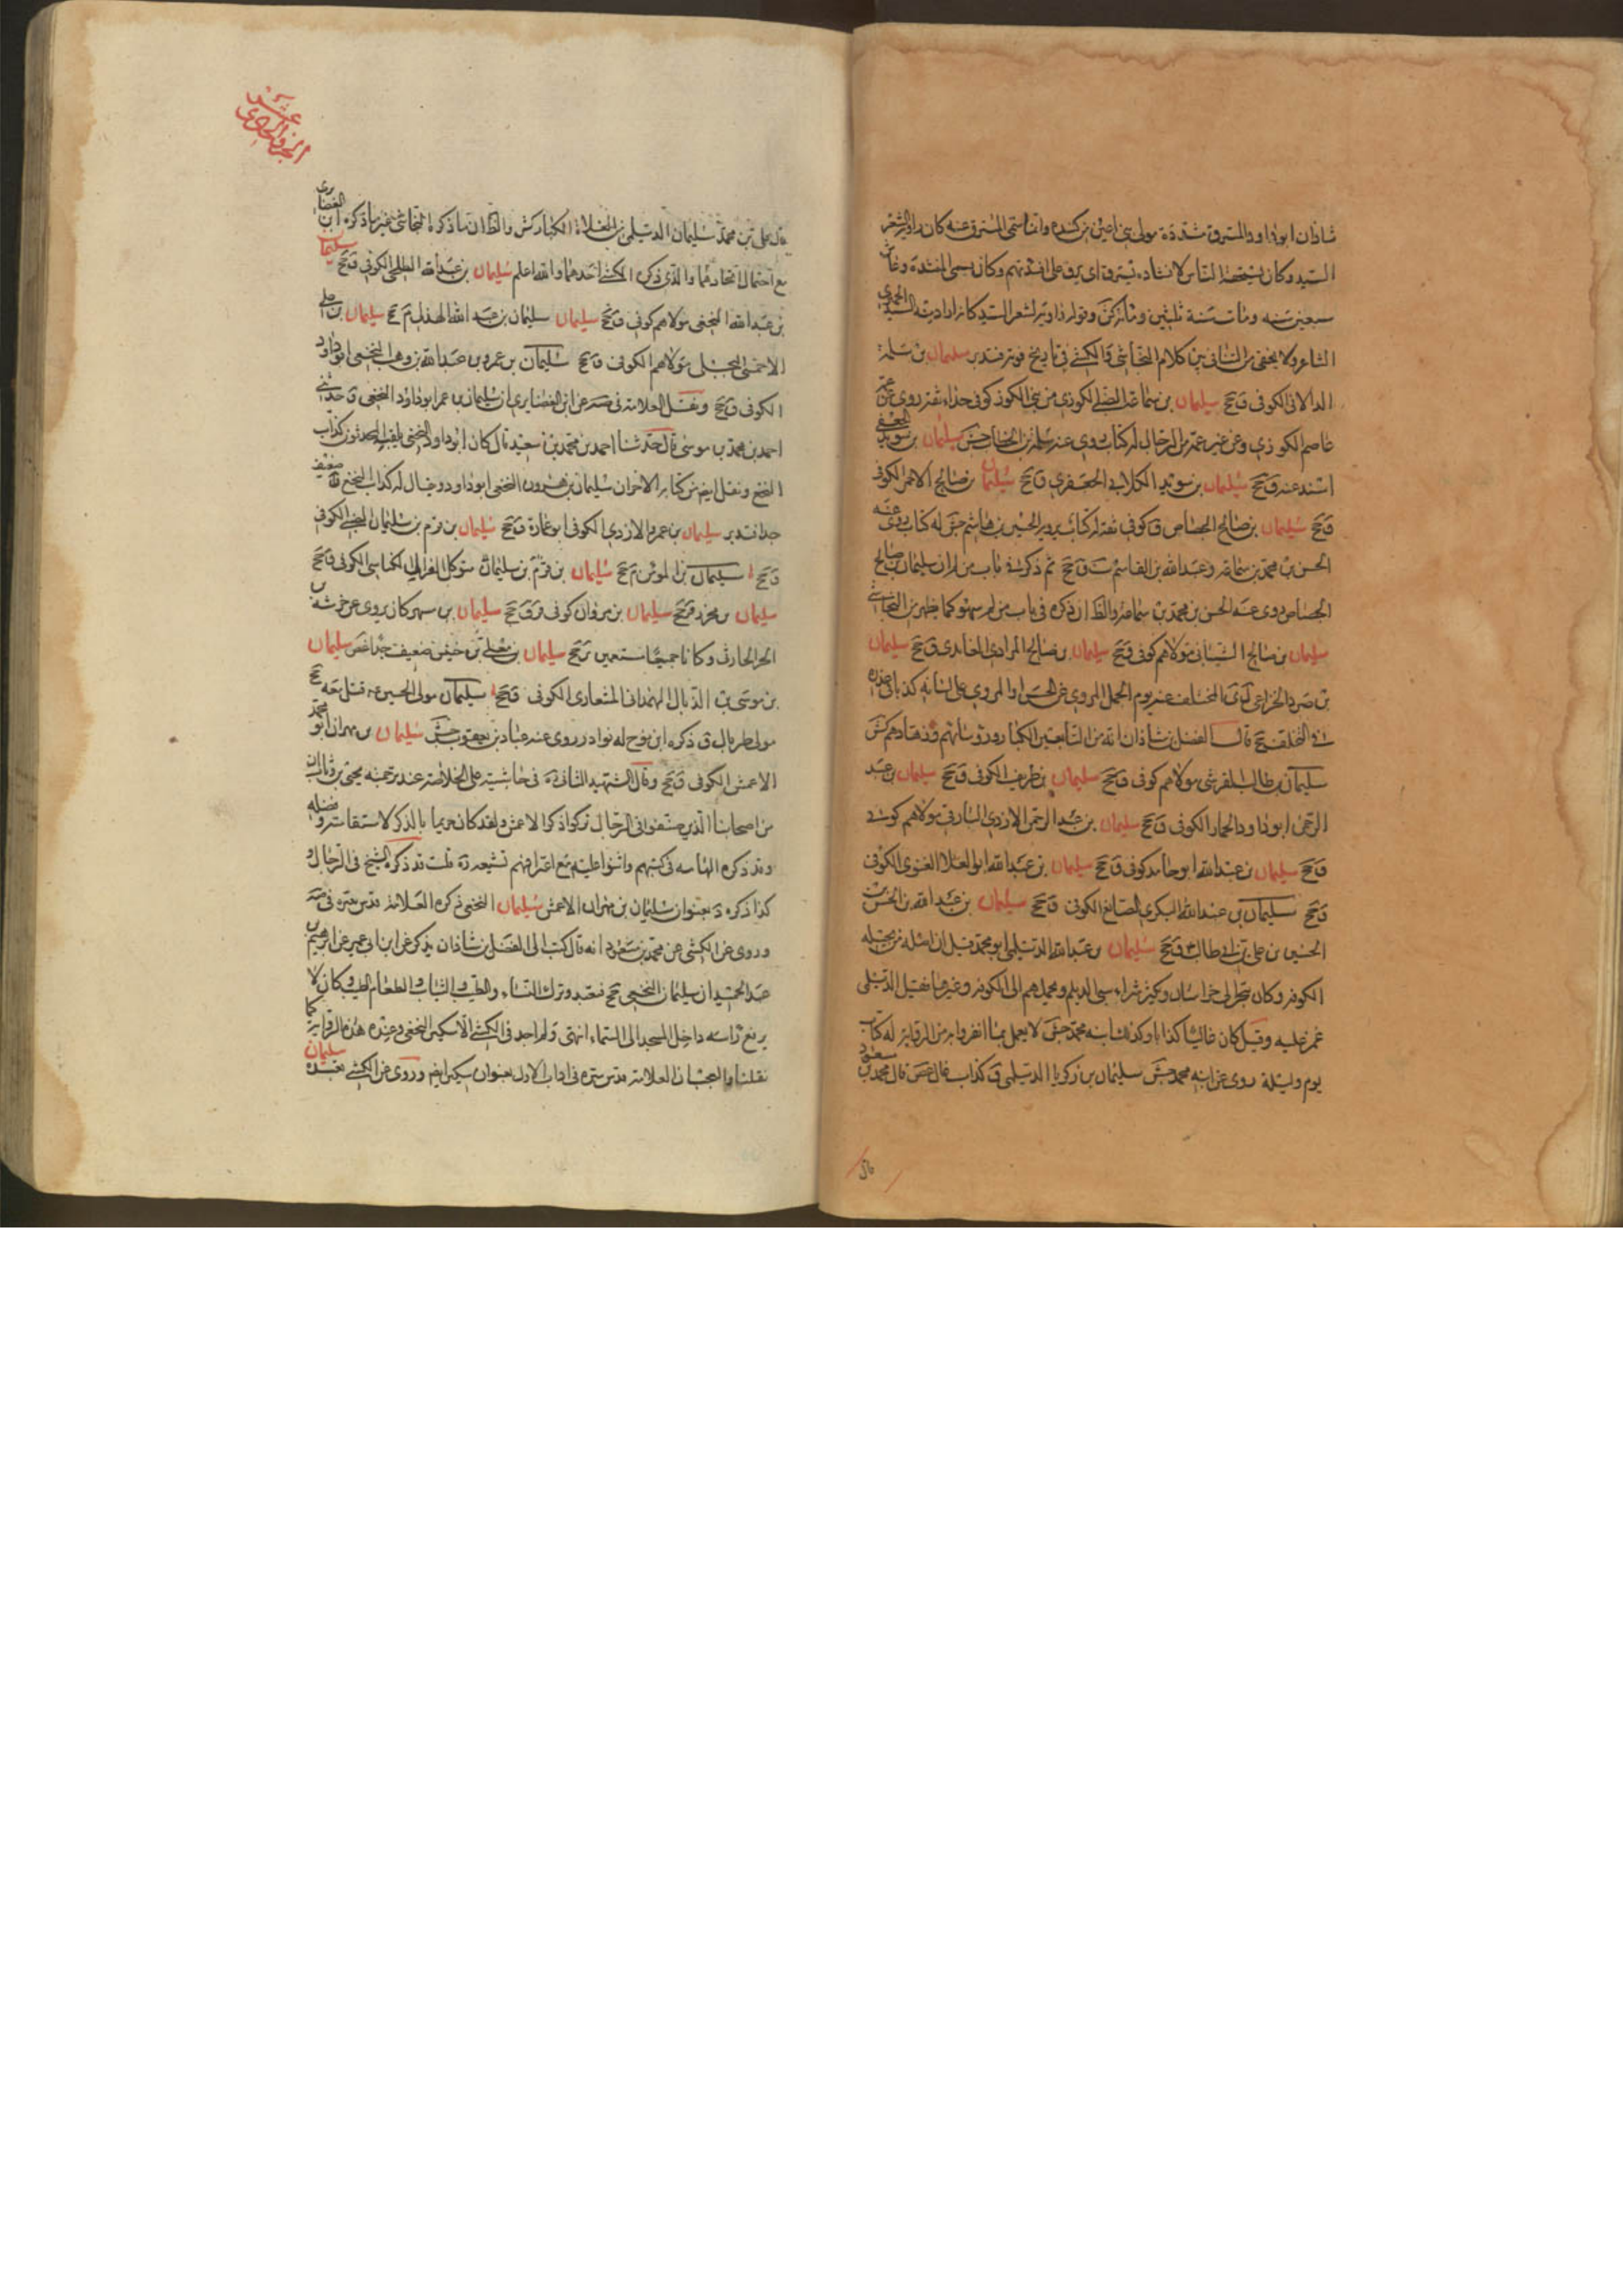 شاذان ابو داود المسترق مشددة مولى بنى اعين من كندة وانما سمى المسترق لانه كان راوية لشعر
السيد وكان يستخفه الناس لانشاده يسترق اى يرق على افئدتهم وكان يسمى المنشد وعاش
سبعين سنه ومات سنة ثلثين ومائتين
الشاعر ولا يخفى التنافى بين كلام النجاشى والكشى فى تاريخ فوته فتدبر سليمان بن سلمة
الدالانى الكوفى ق جخ سليمان بن سماعة الضبى الكوزى من بنى الكوز كوفى حذاء ثقة روى عن عمه
عاصم الكوزى وعن غير عمه من الرجال له كتاب روى عنه سلمة بن الخطاب جش سليمان بن سويد الجعفى
اسند عنه ق جخ سليمان بن سويد الكلابى الجعفرى ق جخ سليمان بن صالح الاحمر الكوفى
ق جخ سليمان بن صالح الجصاص ق كوفى ثقة له كتاب يرويه الحسين بن هاشم جش له كتاب روى عنه
الحسن بن محمد بن سماعة وعبد الله بن القاسم ست ق جخ ثم ذكره فى باب من لم ان سليمان بن صالح
الجصاص روى عنه الحسن بن محمد بن سماعة والظ ان ذكره فى باب من لم سهو كما يظهر من النجاشى
سليمان بن صالح الشيبانى مولاهم كوفى ق جخ سليمان بن صالح المرادى الغامدى ق جخ سليمان
بن صرد الخزاعى ل ى ن المختلف عنه يوم الجمل المروى عن الحسن او المروى على لسانه كذبا فى عذره
فى التخلف جخ قال الفضل بن شاذان انه من التابعين الكبار ورؤسائهم وزهادهم كش
سليمان بن طالب القرشى مولاهم كوفى ق جخ سليمان بن طريف الكوفى ق جخ سليمان بن عبد
الرحمن ابو داود الحمار الكوفى ق جخ سليمان بن عبد الرحمن الازدى البارقى مولاهم كوفى
ق جخ سليمان بن عبد الله ابو حامد كوفى ق جخ سليمان بن عبد الله ابو العلا الغنوى الكوفى
ق جخ سليمان بن عبد الله البكرى الصائغ الكوفى ق جخ سليمان بن عبد الله بن الحسن بن
الحسين بن على بن ابى طالب ق جخ سليمان بن عبد الله الديلمى ابو محمد قيل ان اصله من بجيلة
الكوفه وكان يتجر الى خراسان ويكثر شراء سبى الديلم ويحملهم الى الكوفه وغيرها فقيل الديلمى
غمز عليه وقيل كان غاليا كذابا وكذلك ابنه محمد جش لا يعمل بما انفردا به من الرواية له كتاب
يوم وليلة روى عنه ابنه محمد جش سليمان بن زكريا الديلمى ق كذاب غال غض قال محمد بن مسعود
الجزو الحادى عشر
قال على بن محمد سليمان الديلمى من الغلاة الكبار كش والظ ان ما ذكره النجاشى غير ما ذكره ابن الغضايرى
مع احتمال اتحادهما والذى ذكره الكشى احدهما والله اعلم سليمان بن عبد الله الطلحى الكوفى ق جخ سليمان
بن عبد الله النخعى مولاهم كوفى ق جخ سليمان سليمان بن عبد الله الهذلى م جخ سليمان بن على
الاحمسى البجلى مولاهم الكوفى ق جخ سليمان بن عمرو بن عبد الله بن وهب النخعى ابو داود
الكوفى ق جخ ونقل العلامة فى صه عن ابن الغضايرى ان سليمان بن عمر ابو داود النخعى ق حدثنى
احمد بن محمد بن موسى قال حدثنا احمد بن محمد بن سعيد قال كان ابو داود النخعى يلقبه المحدثون كذاب
النخع ونقل ايضا من كتابه الاخر ان سليمان بن هرون النخعى ابو داود يقال له كذاب النخع ق ضعيف
جدا فتدبر سليمان بن عمرو الازدى الكوفى ابو عمارة ق جخ سليمان بن قرم بن سليمان الضبى الكوفى
ق جخ سليمان بن المؤمن م جخ سليمان بن قرم بن سليمان متوكل الغزال الكناسى الكوفى ق جخ
سليمان بن محرز ق جخ سليمان بن مروان كوفى ق ق جخ سليمان بن مسهر كان يروى عن خرشة بن
الحر الحارثى وكانا جميعا مستقيمين ى جخ سليمان بن معلى بن خنيس ضعيف جدا غض سليمان
بن موسى بن الذيال الهمدانى المشعارى الكوفى ق جخ سليمان مولى الحسين ع قتل معه جخ
مولى طربال ق ذكره ابن نوح له نوادر روى عنه عباد بن يعقوب جش سليمان بن مهران ابو محمد
الاعمش الكوفى ق جخ وقال الشهيد الثانى ره فى حاشيته على الخلاصة عند ترجمه يحيى بن وثاب ان
من اصحابنا الذين صنفوا فى الرجال تركوا ذكر الاعمش ولقد كان حريا بالذكر لاستقامته وفضله
وقد ذكره العامه فى كتبهم واثنوا عليه مع اعترافهم بتشيعه ره قلت قد ذكره الشيخ فى الرجال و
كذا ذكره د بعنوان سليمان بن مهران الاعمش سليمان النخعى ذكره العلامة قدس سره فى صه
وروى عن الكشى عن محمد بن مسعود انه قال كتب الى الفضل بن شاذان يذكر عن ابن ابى عمير عن ابرهيم بن
عبد الحميد ان سليمان النخعى حج فتعبد وترك النساء والطيب والثياب والطعام الطيب وكان لا
يرفع راسه داخل المسجد الى السماء انتهى ولم اجد فى الكشى الا سكين النخعى وعنده هذه الرواية كما
نقلنا والعجب ان العلامة قدس سره فى باب الاول بعنوان سكين ايضا وروى عن الكشى تعبده سليمان